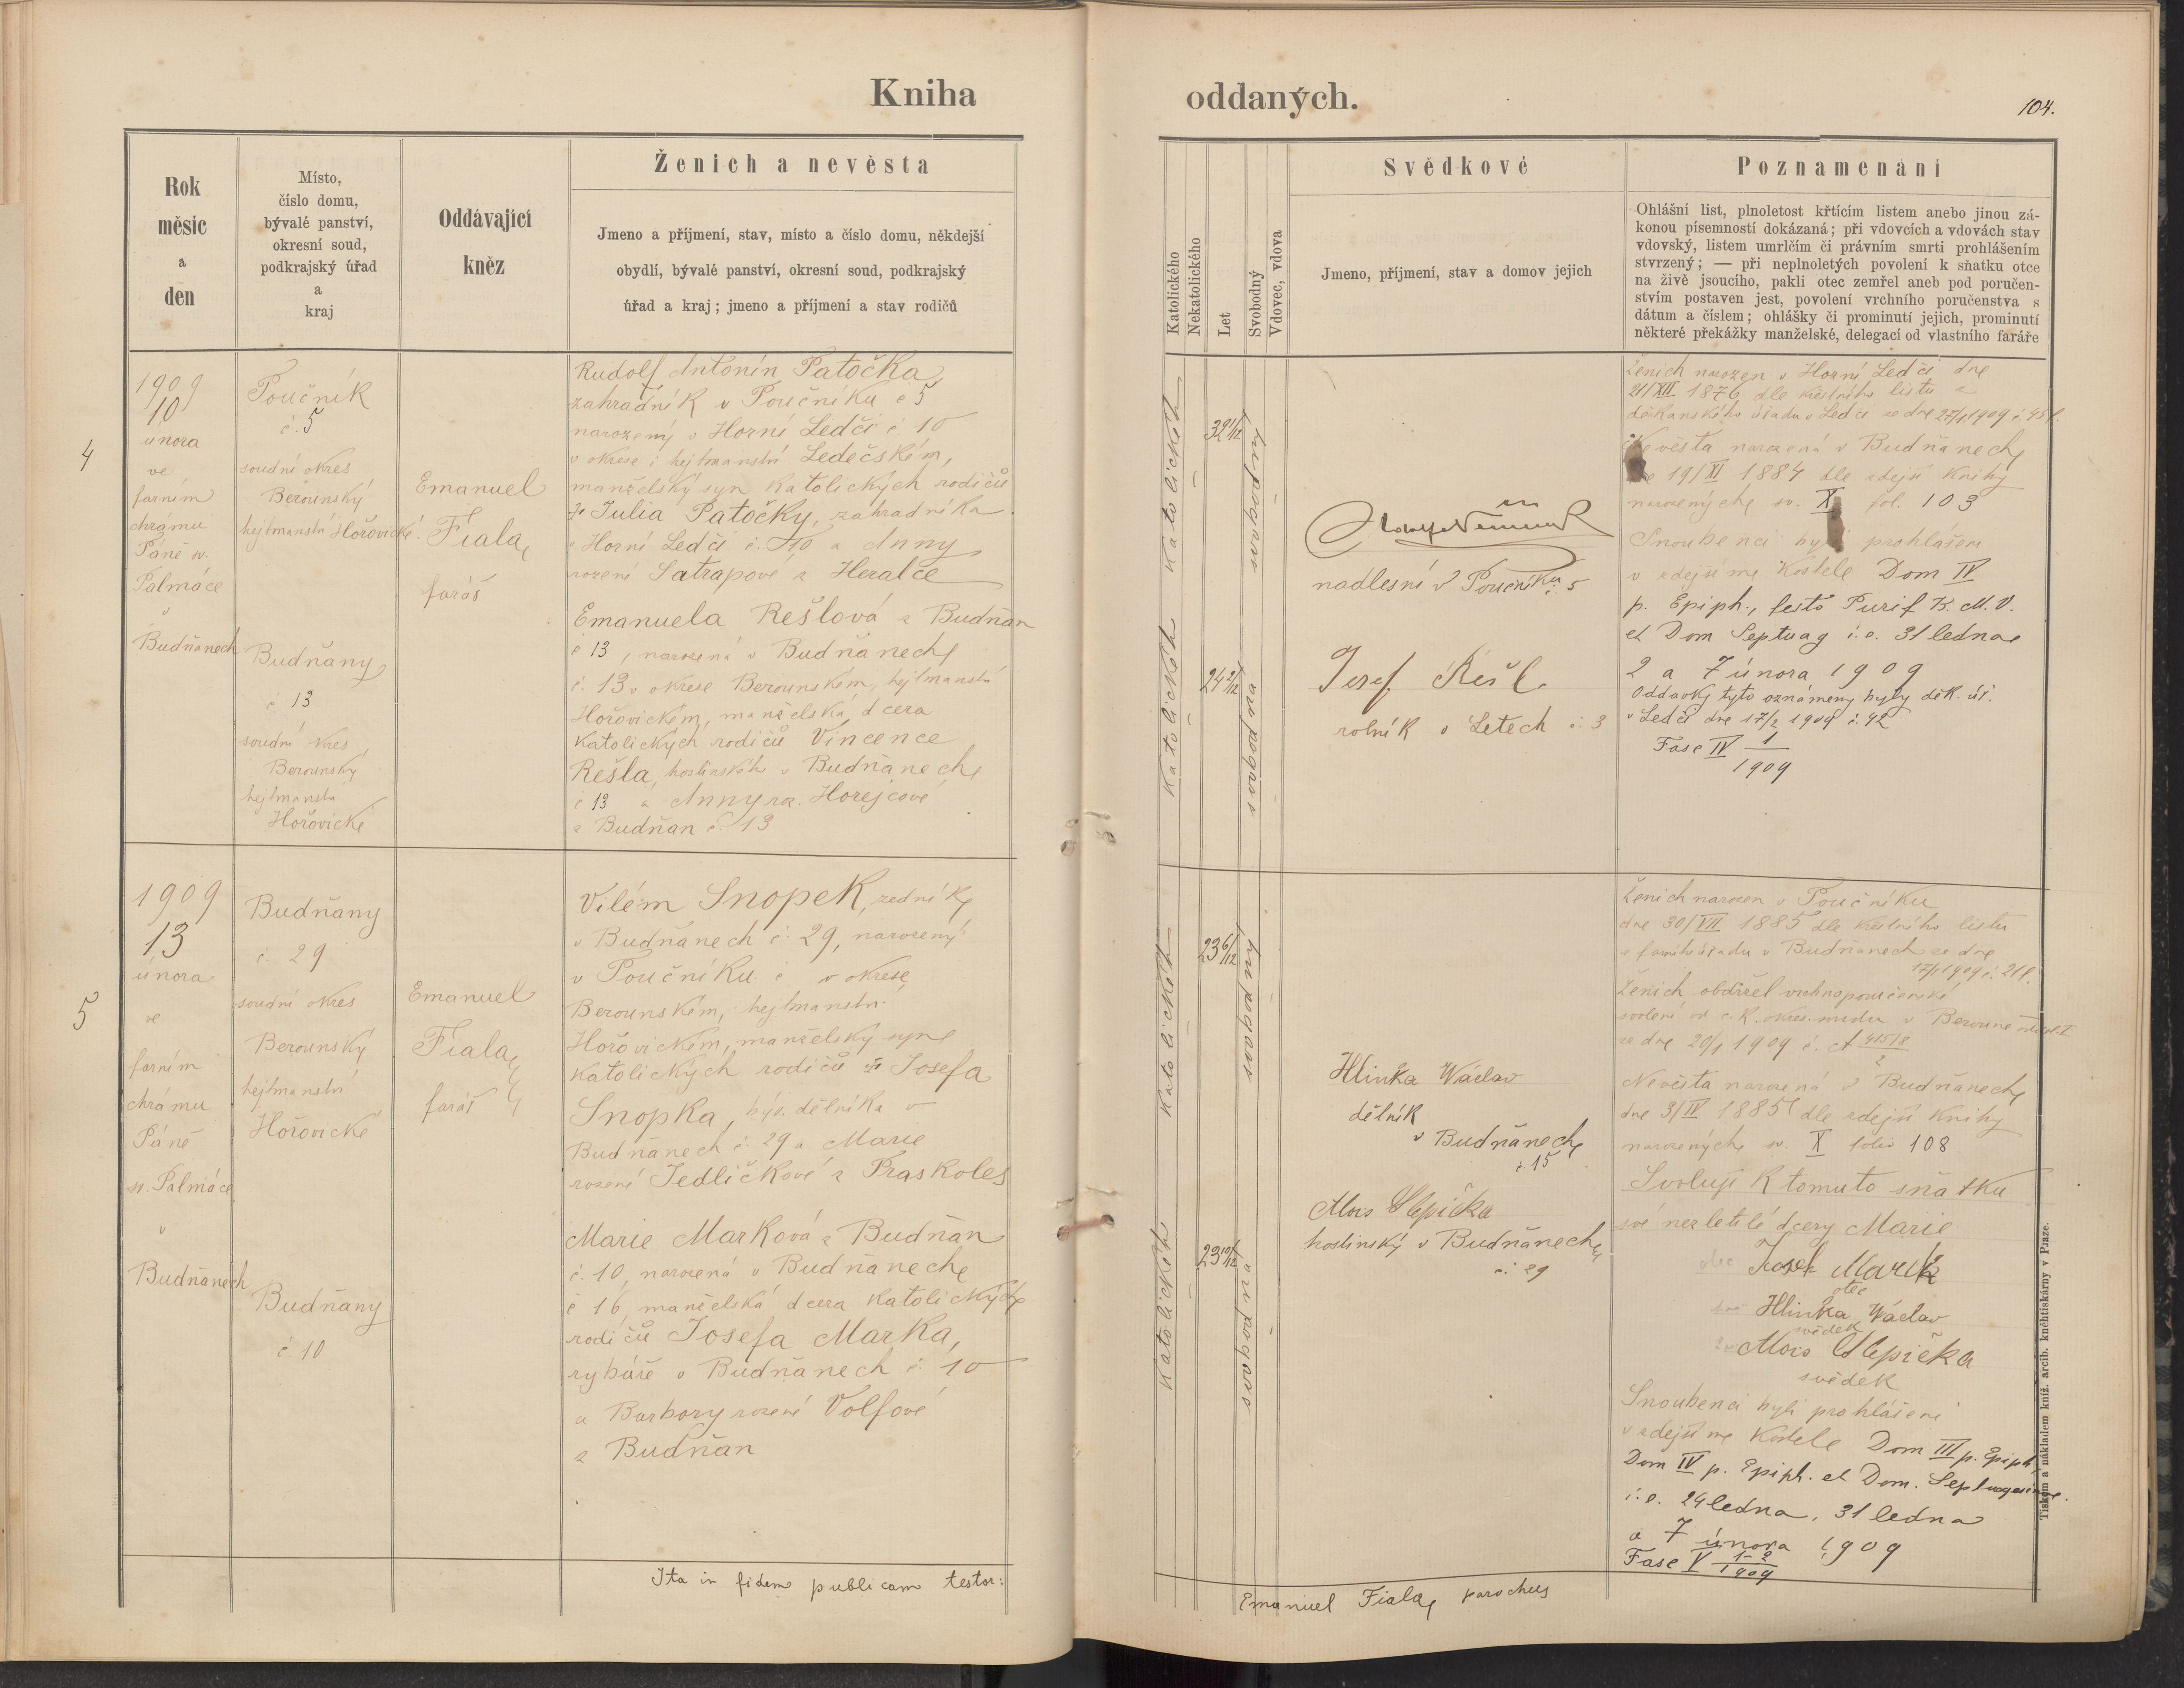 Kniha
oddaných.
104.
Rok
měsíc
a
den
Místo,
číslo domu,
bývalé panství,
okresní soud,
podkrajský úřad
a
kraj
Oddávající
kněz
Ženich a nevěsta
Jmeno a příjmení, stav, místo a číslo domu, někdejší
obydlí, bývalé panství, okresní soud, podkrajský
úřad a kraj; jmeno a příjmení a stav rodičů
4
1909
10
února
ve
farním
chrámu
Páně sv.
Palmáce
v
Budňanech
Poučník
č. 5
soudní okres
Berounský
hejtmanství Hořovické.
Budňany
č 13
soudní okres
Berounský
hejtmanství
Hořovické
Emanuel
Fiala,
farář
Rudolf Antonín Patočka,
zahradník v Poučníku č 5
narozený v Horní Ledči č 10
v okrese i hejtmanství Ledečském,
manželský syn katolických rodičů
Julia Patočky, zahradníka
v Horní Ledči č. 10 a Anny
rozené Satrapové z Heralce
Emanuela Rešlová z Budňan
č 13, narozená v Budňanech
č. 13 v okrese Berounském, hejtmanství
Hořovickém, manželská dcera
katolických rodičů Vincence
Rešla, hostinského v Budňanech
č 13 a Anny roz. Horejcové
z Budňan č. 13
5
1909
13
února
ve
farním
chrámu
Páně
sv. Palmáce
v
Budňanech
Budňany
č. 29
soudní okres
Berounský
hejtmanství
Hořovické
Budňany
č. 10
Emanuel
Fiala,
farář
Vilém Snopek, zedník
v Budňanech č. 29, narozený
v Poučníku č v okrese
Berounském, hejtmanství
Hořovickém, manželský syn
katolických rodičů Josefa
Snopka, býv. dělníka v
Budňanech č. 29 a Marie
rozené Jedličkové z Praskoles
Marie Marková z Budňan
č. 10, narozená v Budňanech
č 16, manželská dcera katolických
rodičů Josefa Marka,
rybáře v Budňanech č. 10
a Barbory rozené Volfové
z Budňan
Ita in fidem publicam testor:
Katolického
Nekatolického
Let
Svobodný
Vdovec, vdova
Svědkové
Jmeno, příjmení, stav a domov jejich
Poznamenání
Ohlášní list, plnoletost křtícím listem anebo jinou zá-
konou písemností dokázaná; při vdovcích a vdovách stav
vdovský, listem umrlčím či právním smrti prohlášením
stvrzený; — při neplnoletých povolení k sňatku otce
na živě jsoucího, pakli otec zemřel aneb pod poručen-
stvím postaven jest, povolení vrchního poručenstva s
dátum a číslem; ohlášky či prominutí jejich, prominutí
některé překážky manželské, delegací od vlastního faráře
katolického
32 1/12
svobodný
katolického
24 2/12
svobodná
nadlesní v Poučníku č. 5
Josef Rešl
rolník v Letech č. 3
Ženich narozen v Horní Ledči dne
21/XII 1876 dle křestního listu z
děkanského úřadu v Ledči ze dne 27/1 1909 č. 45
Nevěsta narozená v Budňanech
dne 19/XI 1884 dle zdejší knihy
narozených sv. X fol. 103
Snoubenci byli prohlášeni
v zdejším kostele Dom IV
p. Epiph., festo Purif B. M. V.
et Dom Septuag i. e. 31 ledna
2 a 7 února 1909
Oddavky tyto oznámeny byly děk. úř.
v Ledči dne 17/2 1909 č. 42
Fasc IV 1/1909
katolického
23 6/12
svobodný
katolického
23 10/12
svobodná
Hlinka Wáclav
dělník
v Budňanech
č. 15
Alois Slepička
hostinský v Budňanech
č. 29
Ženich narozen v Poučníku
dne 30/VII 1885 dle křestního listu
z farního úřadu v Budňanech ze dne
17/1 1909 č. 21
Ženich obdržel vrchnoporučenské
svolení od c. k. okres. soudu v Berouně
ze dne 20/1 1909 č.
Nevěsta narozená v Budňanech
dne 3/IV 1885 dle zdejší knihy
narozených sv. X folio 108
Svoluji k tomuto sňatku
své nezletilé dcery Marie
Josef Marek
otec
Hlinka Wáclav
svědek
Alois Slepička
svědek
Snoubenci byli prohlášeni
v zdejším kostele Dom III p. Epiph
Dom IV p. Epiph. et Dom. Septuagesimae.
i. e. 24 ledna, 31 ledna
a 7 února 1909
Fasc V 1-2/1909
Emanuel Fiala, parochus
Tiskem a nákladem kníž. arcib. kněhtiskárny v Praze.